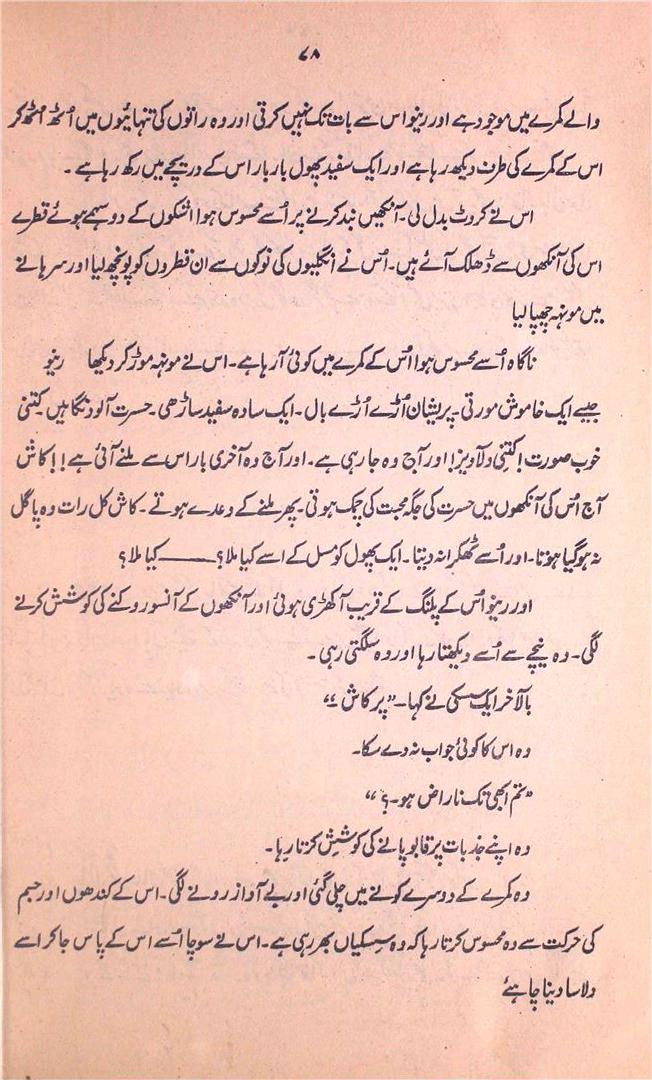 ۷۸
والے کمرے میں موجود ہے اور رینو اس سے بات تک نہیں کرتی اور وہ راتوں کی تنہائیوں میں اُٹھ اُٹھ کر
اس کے کمرے کی طرف دیکھ رہا ہے اور ایک سفید پھول بار بار اس کے دریچے میں رکھ رہا ہے ۔
اس نے کروٹ بدل لی۔ آنکھیں بند کرنے پر اُسے محسوس ہوا اشکوں کے دو سہمے ہوئے قطرے
اس کی آنکھوں سے ڈھلک آئے ہیں۔ اُس نے انگلیوں کی نوکوں سے ان قطروں کو پونچھ لیا اور سرہانے
میں مونہہ چھپا لیا
ناگاہ اُسے محسوس ہوا اُس کے کمرے میں کوئی آ رہا ہے۔ اس نے مونہہ موڑ کر دیکھا رینو
جیسے ایک خاموش مورتی۔ پریشان اُڑے اُڑے بال۔ ایک سادہ سفید ساڑھی۔ حسرت آلود نگاہیں۔ کتنی
خوب صورت! کتنی دلآویز! اور آج وہ جا رہی ہے۔ اور آج وہ آخری بار اس سے ملنے آئی ہے!! کاش
آج اُس کی آنکھوں میں حسرت کی جگہ محبت کی چمک ہوتی۔ پھر ملنے کے وعدے ہوتے۔ کاش کل رات وہ پاگل
نہ ہو گیا ہوتا۔ اور اُسے ٹھکرا نہ دیتا۔ ایک پھول کو مسل کے اسے کیا ملا؟ ——— کیا ملا؟
اور رینو اُس کے پلنگ کے قریب آ کھڑی ہوئی اور آنکھوں کے آنسو روکنے کی کوشش کرنے
لگی۔ وہ نیچے سے اُسے دیکھتا رہا اور وہ سلگتی رہی۔
بالآخر ایک سسکی نے کہا۔ "پرکاش ۔"
وہ اس کا کوئی جواب نہ دے سکا۔
"تم ابھی تک ناراض ہو۔؟"
وہ اپنے جذبات پر قابو پانے کی کوشش کرتا رہا۔
وہ کمرے کے دوسرے کونے میں چلی گئی اور بے آواز رونے لگی۔ اس کے کندھوں اور جسم
کی حرکت سے وہ محسوس کرتا رہا کہ وہ سسکیاں بھر رہی ہے۔ اس نے سوچا اُسے اس کے پاس جا کر اسے
دلاسا دینا چاہئے